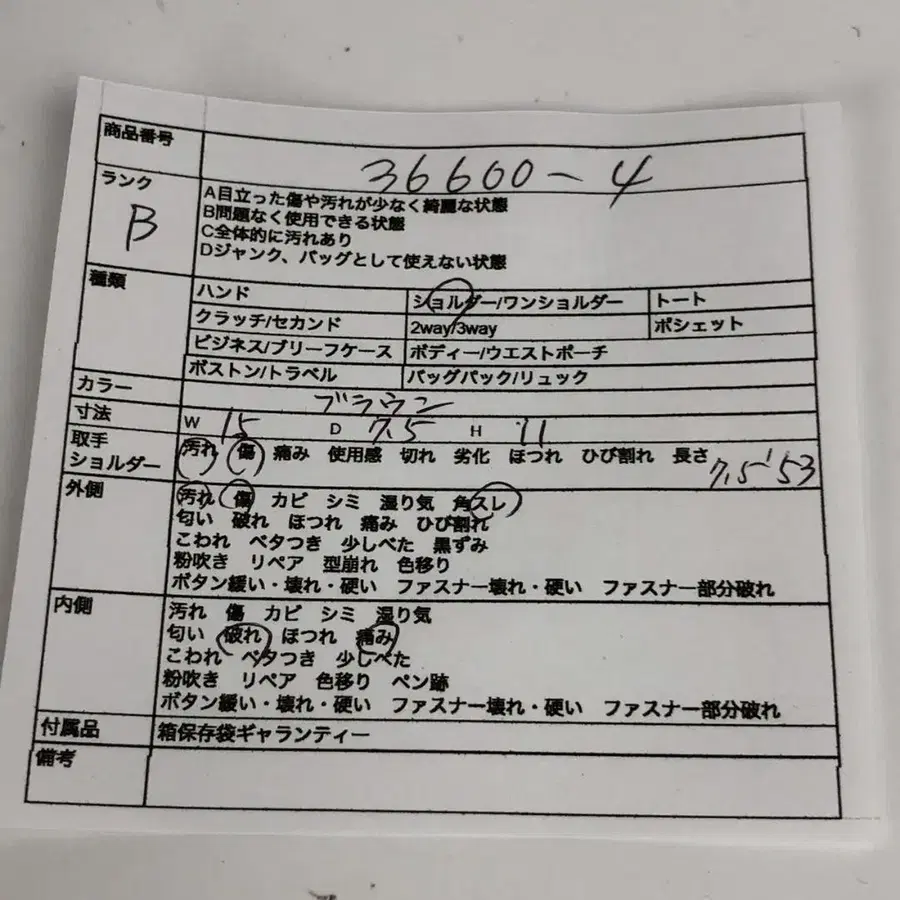 商品番号 36600-4
ランク B
A目立った傷や汚れが少なく綺麗な状態
B問題なく使用できる状態
C全体的に汚れあり
Dジャンク、バッグとして使えない状態
種類 ハンド ショルダー/ワンショルダー トート
クラッチ/セカンド 2way/3way ポシェット
ビジネス/ブリーフケース ボディー/ウエストポーチ
ボストン/トラベル バッグパック/リュック
カラー ブラウン
寸法 W 15 D 7.5 H 11
取手
ショルダー
汚れ 傷 痛み 使用感 切れ 劣化 ほつれ ひび割れ 長さ 7.5' 53
外側 汚れ 傷 カビ シミ 湿り気 角スレ
匂い 破れ ほつれ 痛み ひび割れ
こわれ ベタつき 少しべた 黒ずみ
粉吹き リペア 型崩れ 色移り
ボタン緩い・壊れ・硬い ファスナー壊れ・硬い ファスナー部分破れ
内側 汚れ 傷 カビ シミ 湿り気
匂い 破れ ほつれ 痛み
こわれ ベタつき 少しべた
粉吹き リペア 色移り ペン跡
ボタン緩い・壊れ・硬い ファスナー壊れ・硬い ファスナー部分破れ
付属品 箱保存袋ギャランティー
備考